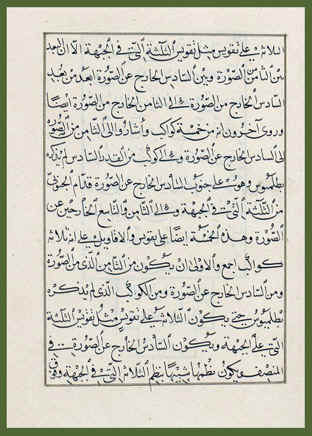 الثلاثة على تقويس مثل تقويس الثلثة التى فى الجبهة الا ان البعد
بين الثامن من الصورة وبين السادس الخارج عن الصورة ابعد من بعد
السادس الخارج من الصورة الى الثامن الخارج من الصورة ايضا
وروى آخرون انه من خمسة كواكب واشاروا الى الثامن من الصورة
الى السادس الخارج عن الصورة والى كوكب من القدر السادس لم يذكره
بطلميوس وهو على جنوب السادس الخارج عن الصورة قدام الجنوبى
من الثلثة التى فى الجبهة والى الثامن والتاسع الخارجين عن
الصورة وهذه الخمسة ايضا على تقويس والاقاويل على انه ثلاثة
كواكب اجمع والاولى ان يكون من الثامن الذى من الصورة
ومن السادس الخارج عن الصورة ومن الكوكب الذى لم يذكره
بطلميوس حتى يكون الثلاثة على تقويس مثل تقويس الثلثة
التى على الجبهة ويكون السادس الخارج عن الصورة فى
المنتصف ويكون نظمها شبيها بنظم الثلاثة التى فى الجبهة